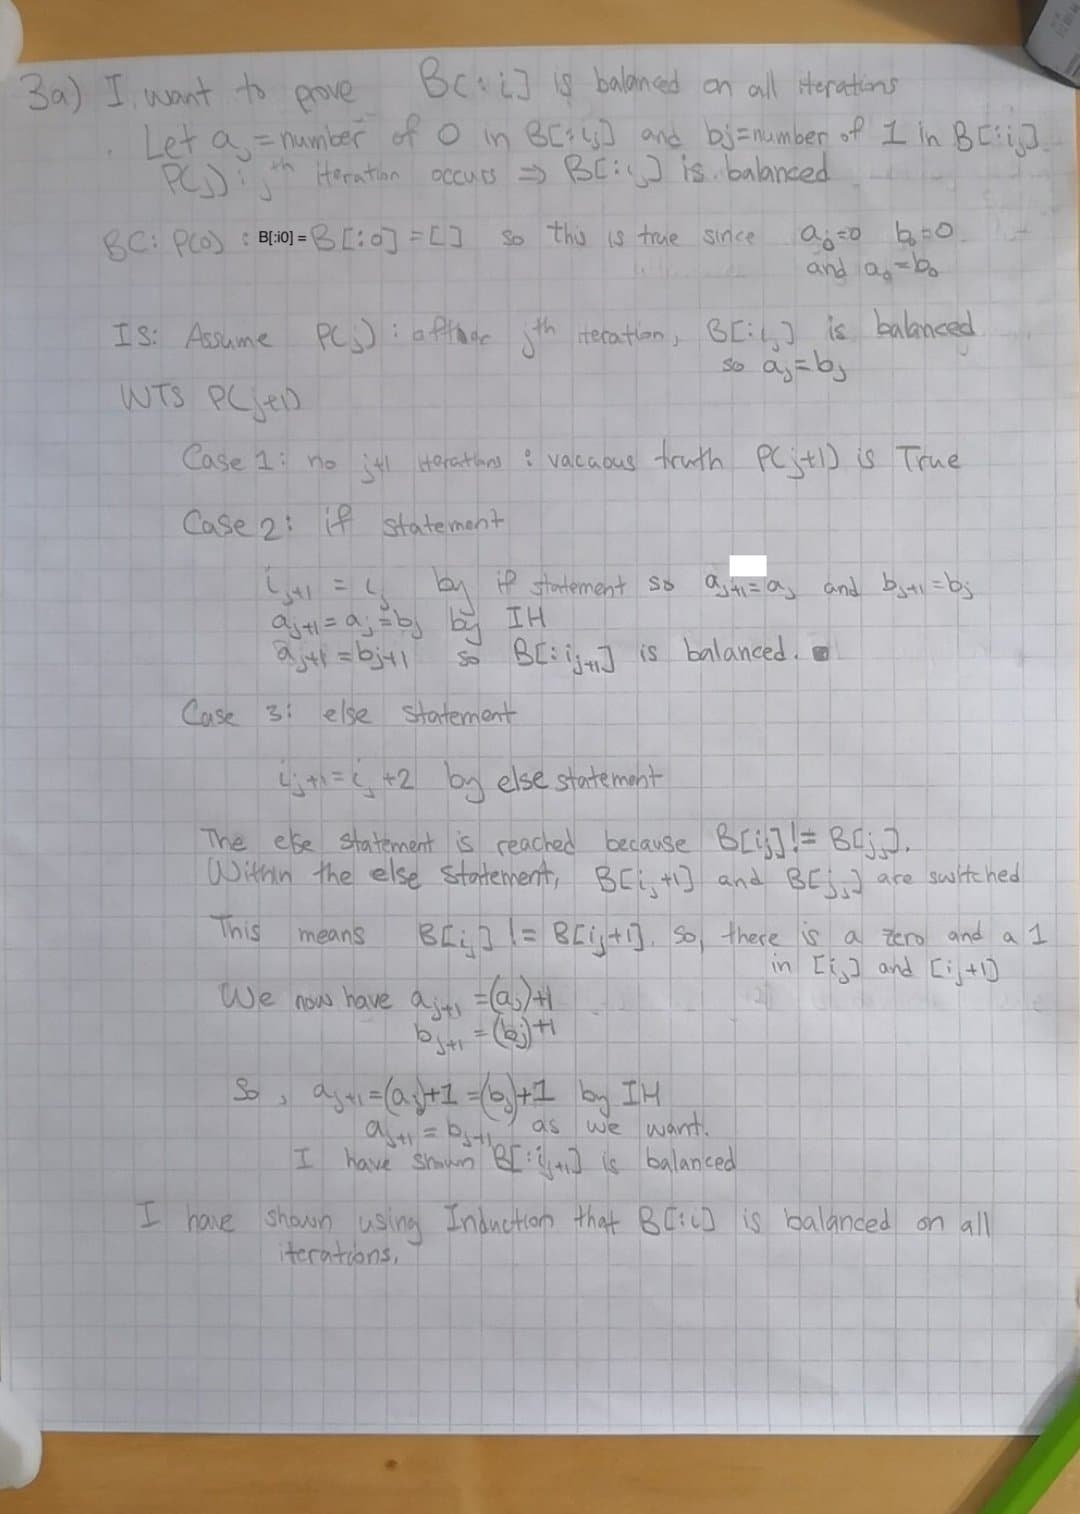 3a) I want to prove B[:i] is balanced on all iterations
Let aj = number of 0 in B[:ij] and bj = number of 1 in B[:ij].
P(j): jth iteration occurs => B[:ij] is balanced
BC: P(0) : B[:i0] = B[:0] = [] so this is true since a0=0 b0=0
and a0=b0
IS: Assume P(j): after jth iteration, B[:ij] is balanced
so aj=bj
WTS P(j+1)
Case 1: no j+1 iterations : vacuous truth P(j+1) is True
Case 2: if statement
ij+1 = ij by if statement so aj+1=aj and bj+1=bj
aj+1=aj=bj by IH
aj+1=bj+1 so B[:ij+1] is balanced.
Case 3: else statement
ij+1=ij+2 by else statement
The else statement is reached because B[ij]!= B[jj].
Within the else statement, B[ij+1] and B[jj] are switched
This means B[ij] != B[ij+1]. So, there is a zero and a 1
in [ij] and [ij+1]
We now have aj+1 =(aj)+1
bj+1 = (bj)+1
So, aj+1=(aj)+1 =(bj)+1 by IH
aj+1 = bj+1, as we want.
I have shown B[:ij+1] is balanced
I have shown using Induction that B[:i] is balanced on all
iterations.